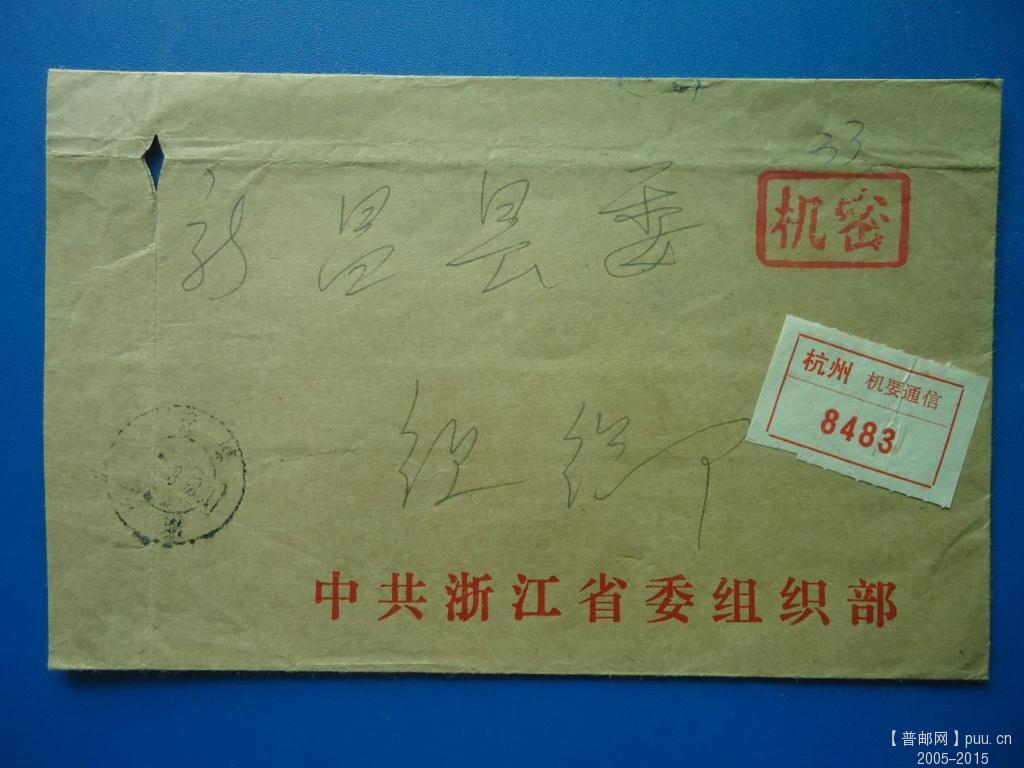 33
机密
新昌县委
杭州 机要通信
8483
组织卩
中共浙江省委组织部
【普邮网】puu.cn
2005-2015